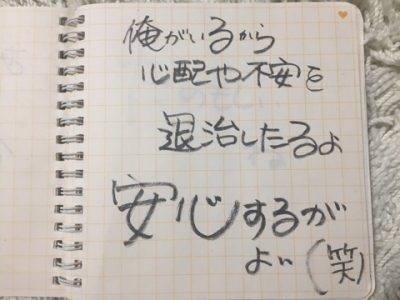 俺がいるから
心配や不安を
退治したるよ
安心するが
よい(笑)